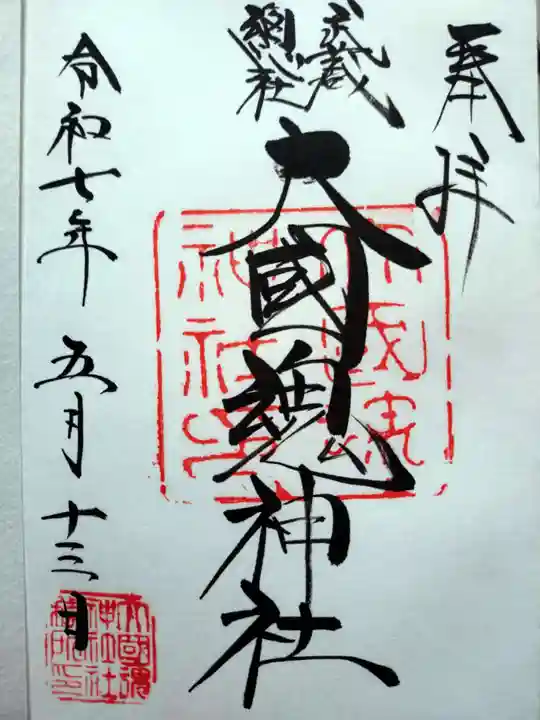 奉拝
武蔵
総社
大國魂神社
令和七年 五月 十三日
大國魂
神社